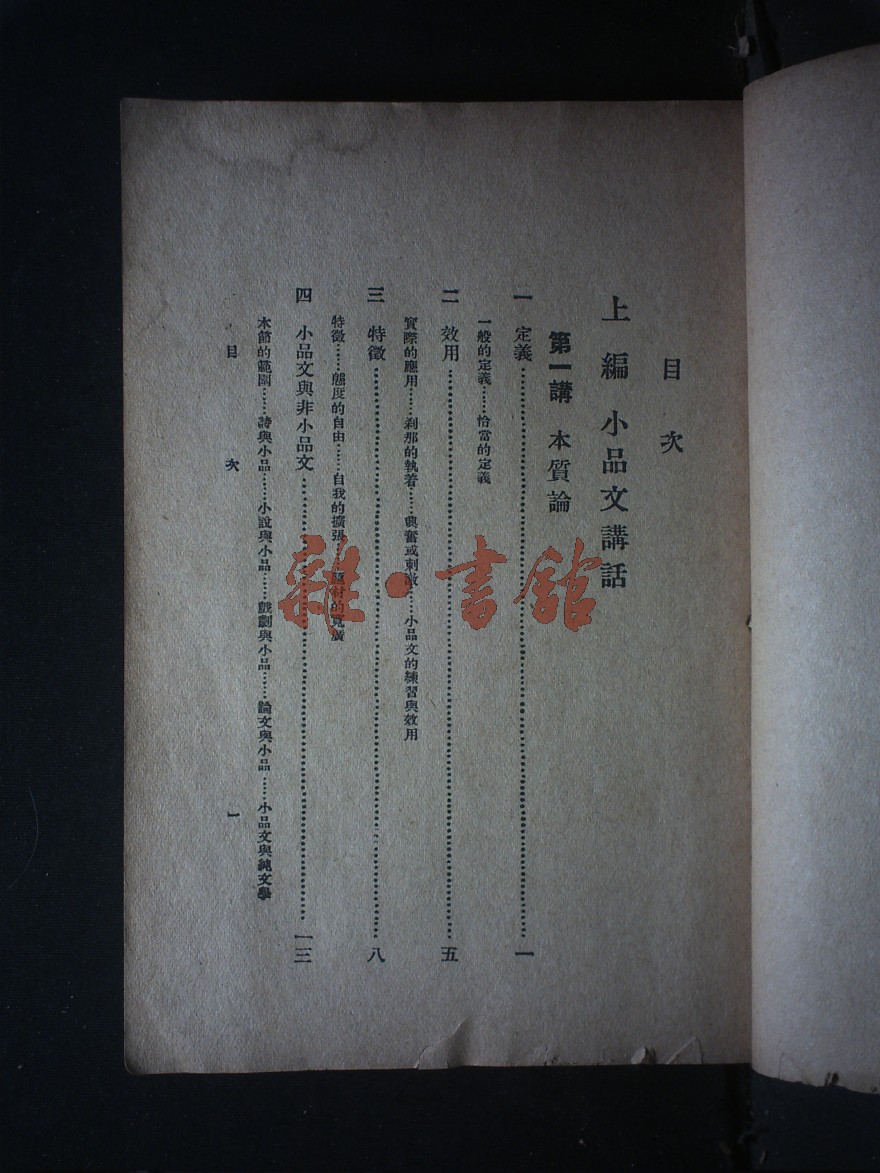 目次
上編 小品文講話
第一講 本質論
一 定義……一
一般的定義……恰當的定義
二 效用……五
實際的應用……刹那的執着……興奮或刺激……小品文的練習與效用
三 特徵……八
特徵……態度的自由……自我的擴張……題材的寬廣
四 小品文與非小品文……一三
本節的範圍……詩與小品……小說與小品……戲劇與小品……論文與小品……小品文與純文學
目次 一
雜·書館